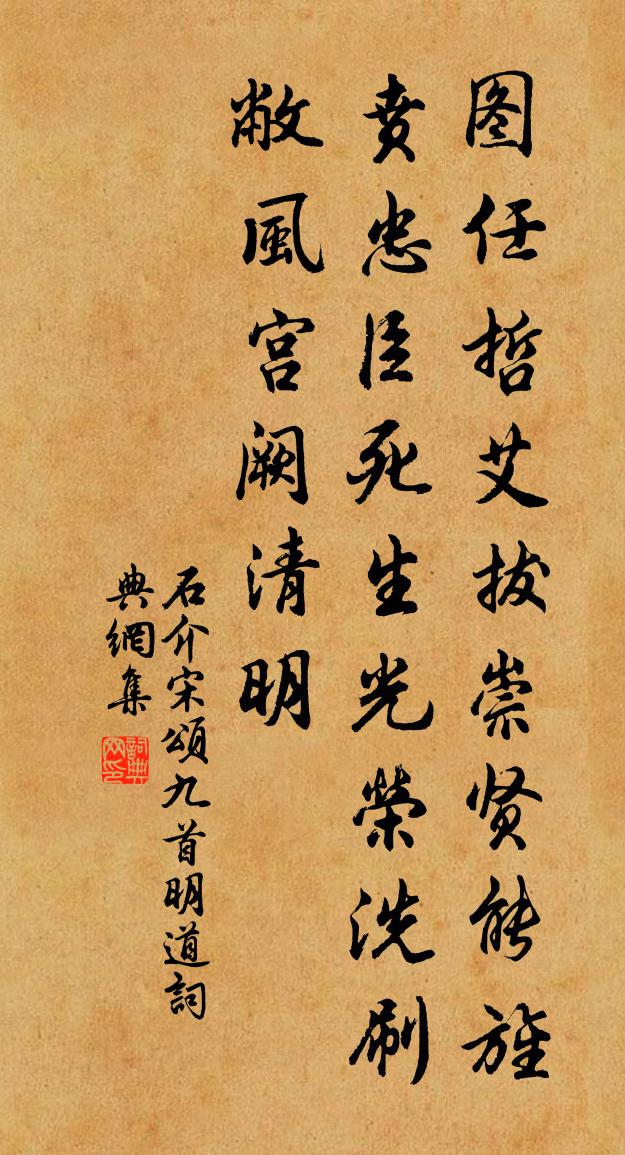 图任哲艾拔崇贤能旌
賁忠臣死生光榮洗刷
敝風宫阙清明
石介宋頌九首明道詞
典網集
詞典
网印